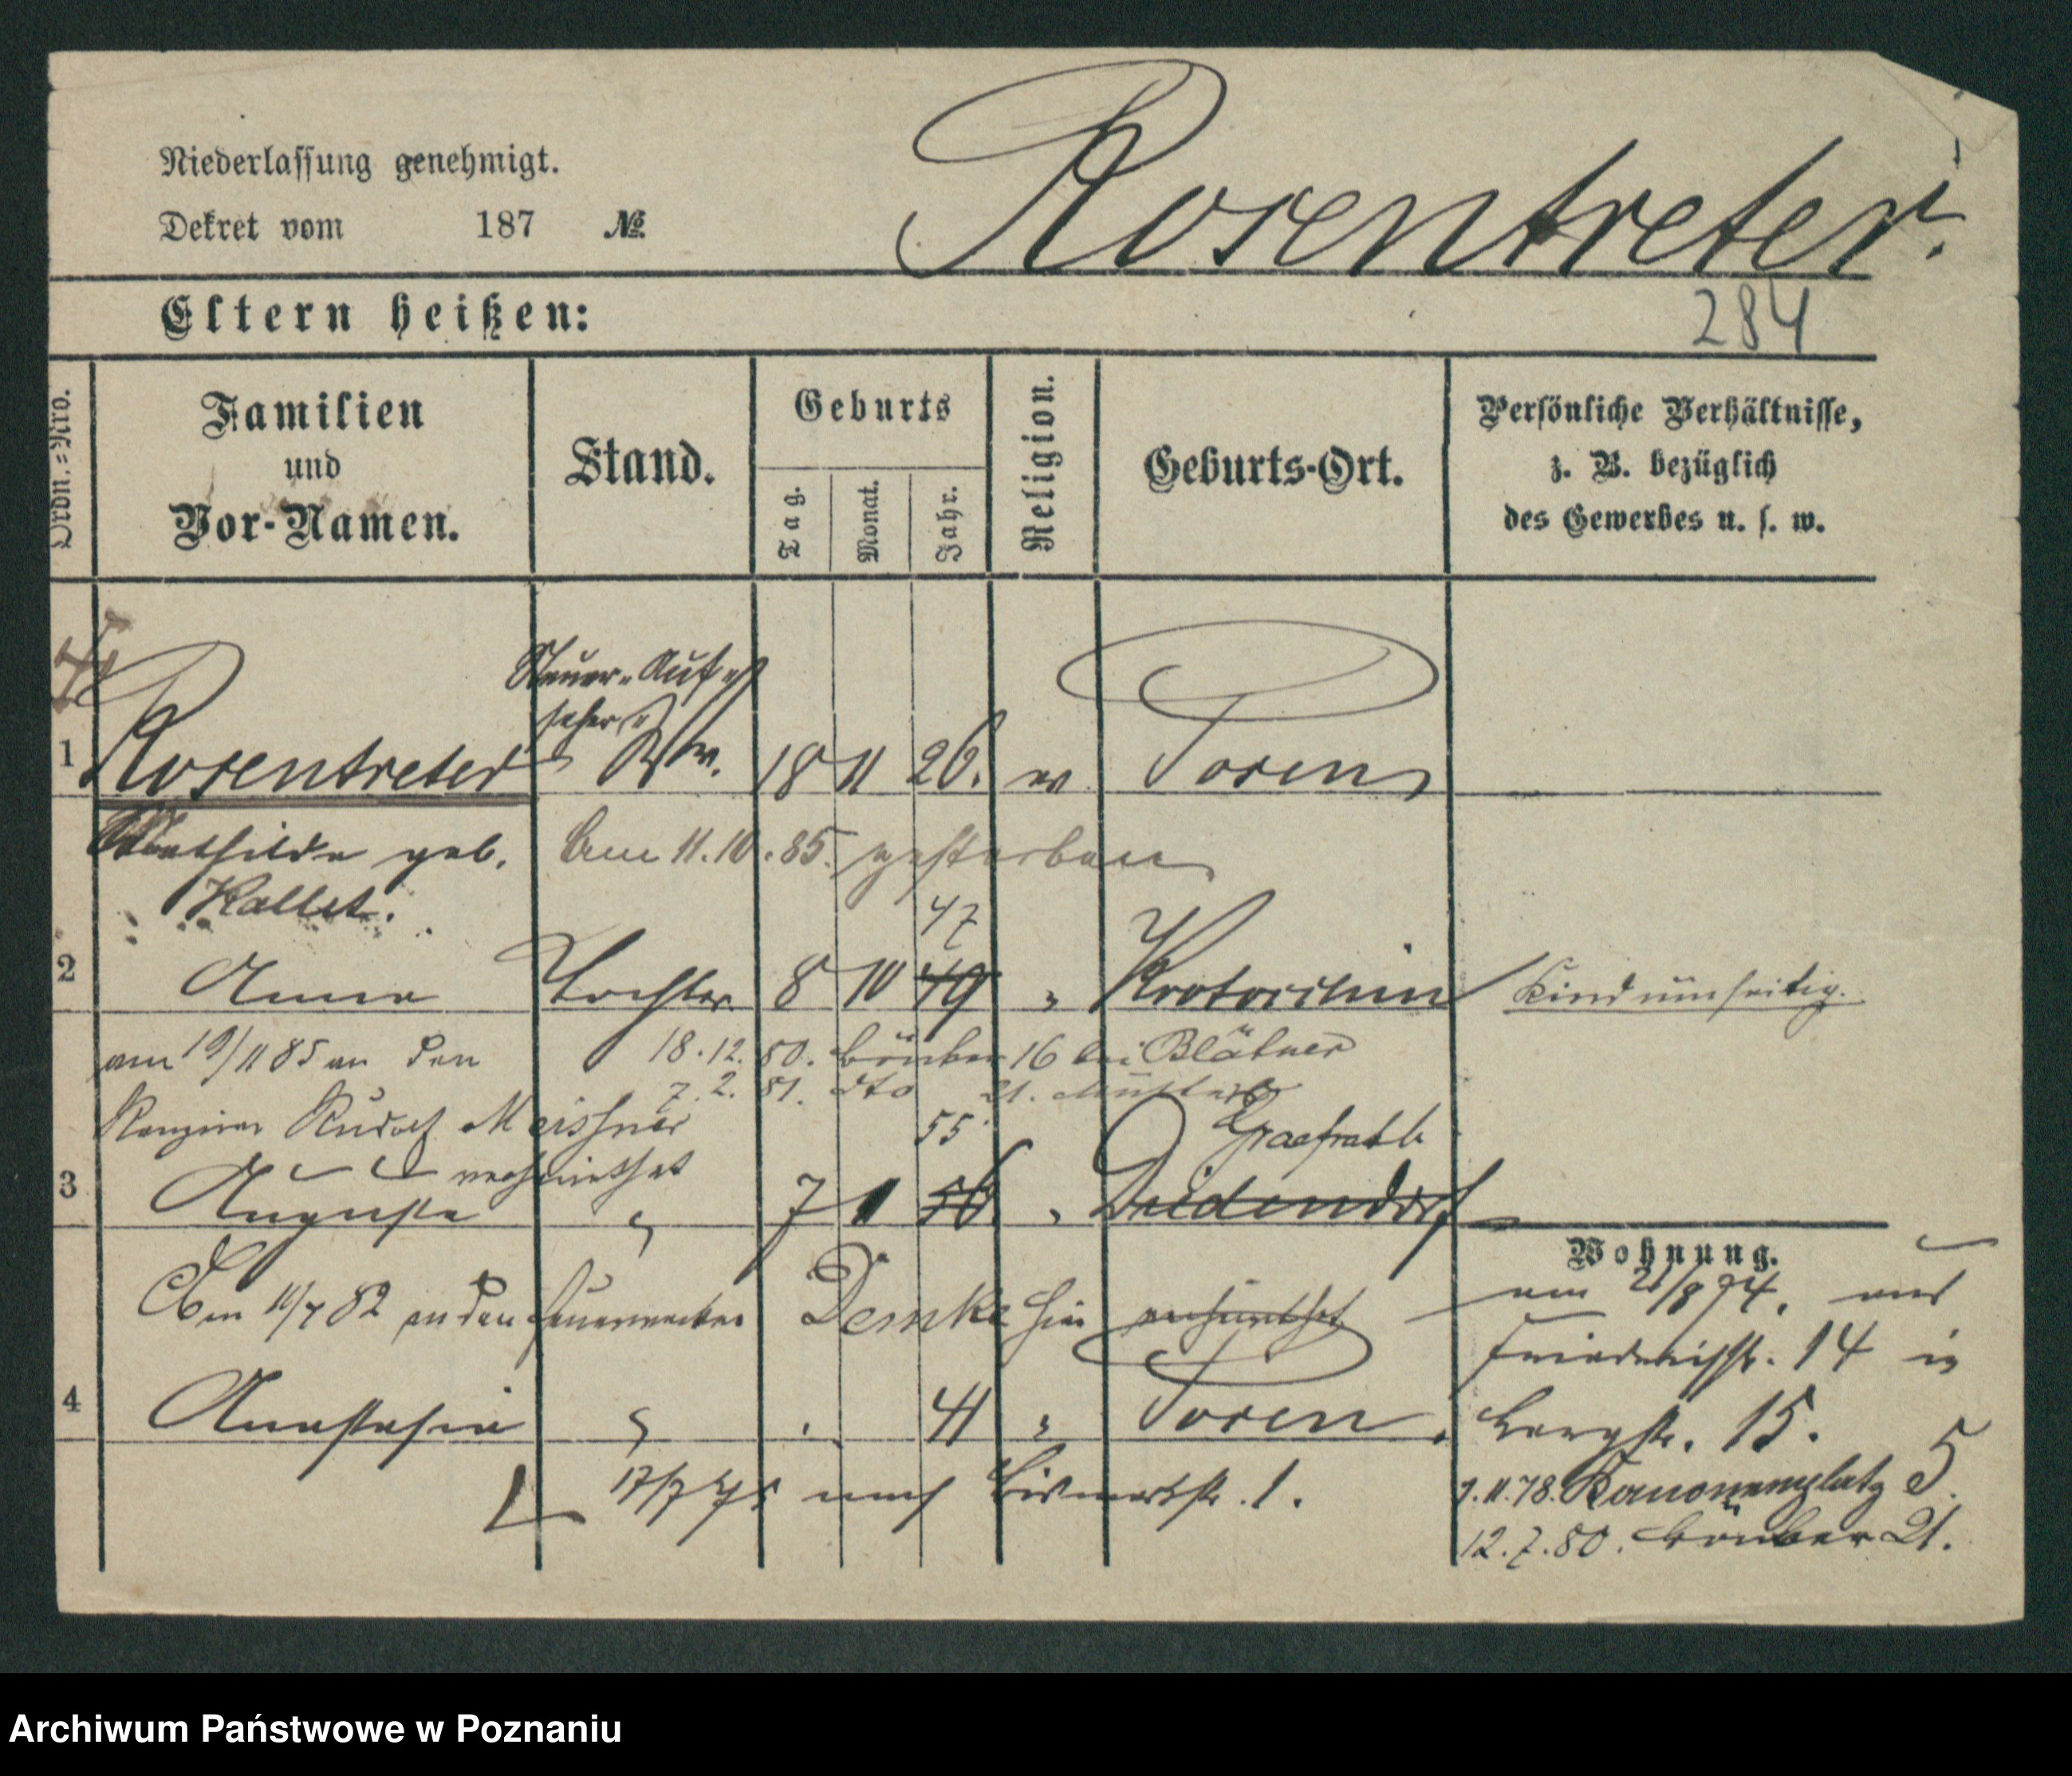 Niederlassung genehmigt.
Dekret vom 187 №
Rosentreter.
Eltern heißen:
284
Ordn.=Nro.
Familien
und
Vor-Namen.
Stand.
Geburts
Tag.
Monat.
Jahr.
Religion.
Geburts-Ort.
Persönliche Verhältnisse,
z. B. bezüglich
des Gewerbes u. s. w.
Steuer-Auf-
seher
1 Rosentreter Ww. 18 11 26. ev Posen
Mathilde geb. Am 11.10.85. gestorben
Kallet.
47
2 Anna Tochter 8 10 49 " Krotoschin Kind umseitig.
am 19/11 85 an den 18.12.80. 16 bei Blätner
7.2.81. dto 21.
Rudolf Meissner 55 Graefrath
verheirathet
3 Auguste " 7 1 56 " Deidendorf
Wohnung.
Am 11/7 82 an den Feuerwerker Demke hier verheirathet
am 21/8 74. aus
Friedrichstr. 14 in
4 Anastasia " 41 " Posen
Bergstr. 15.
17/7 75 nach Bismarkstr. 1.
1.11.78. Kanonenplatz 5.
12.7.80. 21.
Archiwum Państwowe w Poznaniu